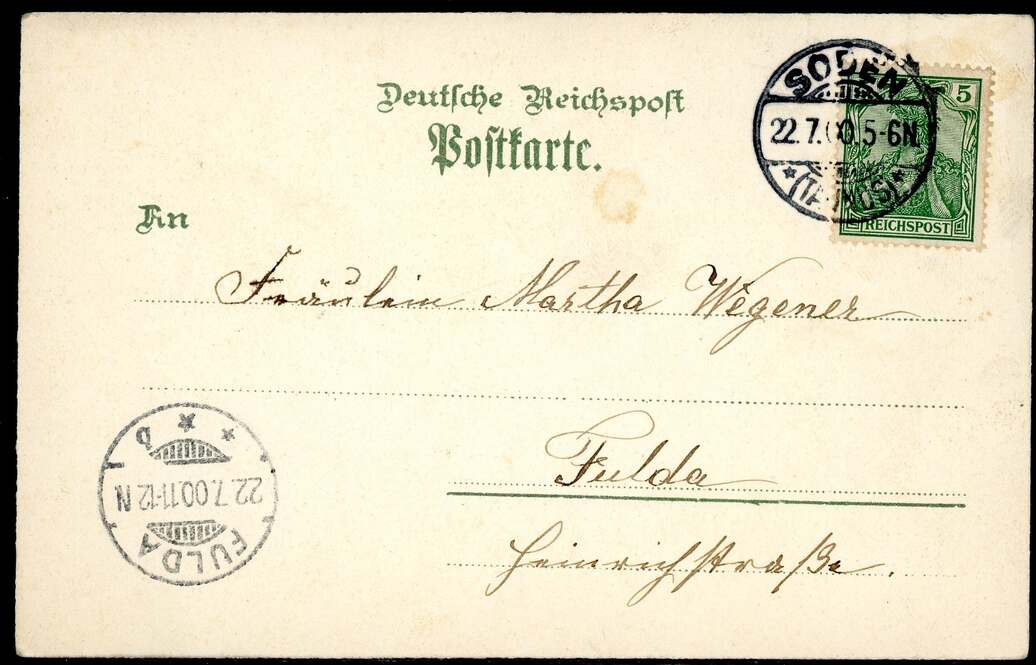 Deutsche Reichspost
Postkarte.
SODEN
22.7.00.5-6N.
* (TAUNUS) *
5
REICHSPOST
An
Fräulein Martha Wegener
Fulda
Heinrichstraße.
* * b
22.7.00.11-12N
FULDA